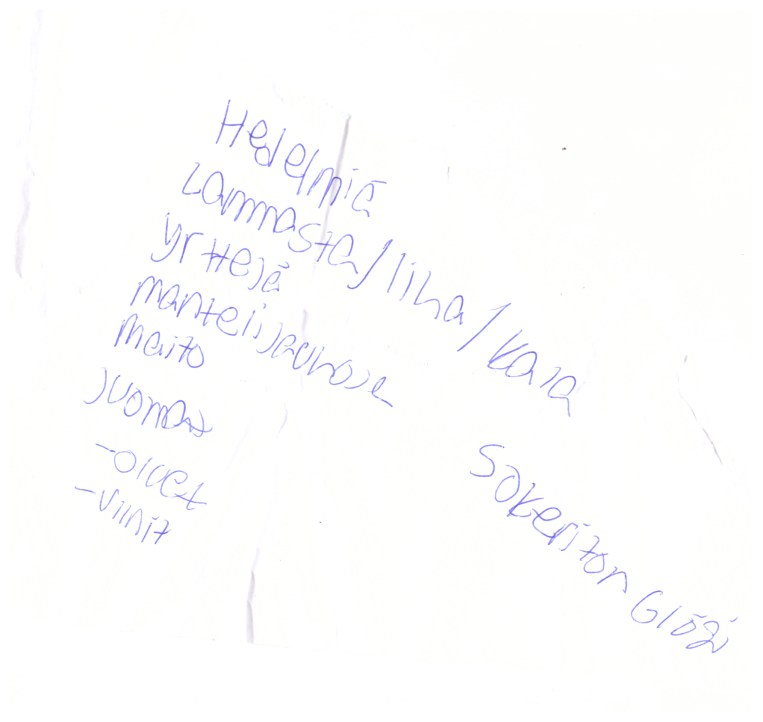 Hedelmiä
Lammasta/liha/kala
yrttejä
mantelijauhoja
Maito
juomat
-oluet
-viinit
Sokeriton Glögi